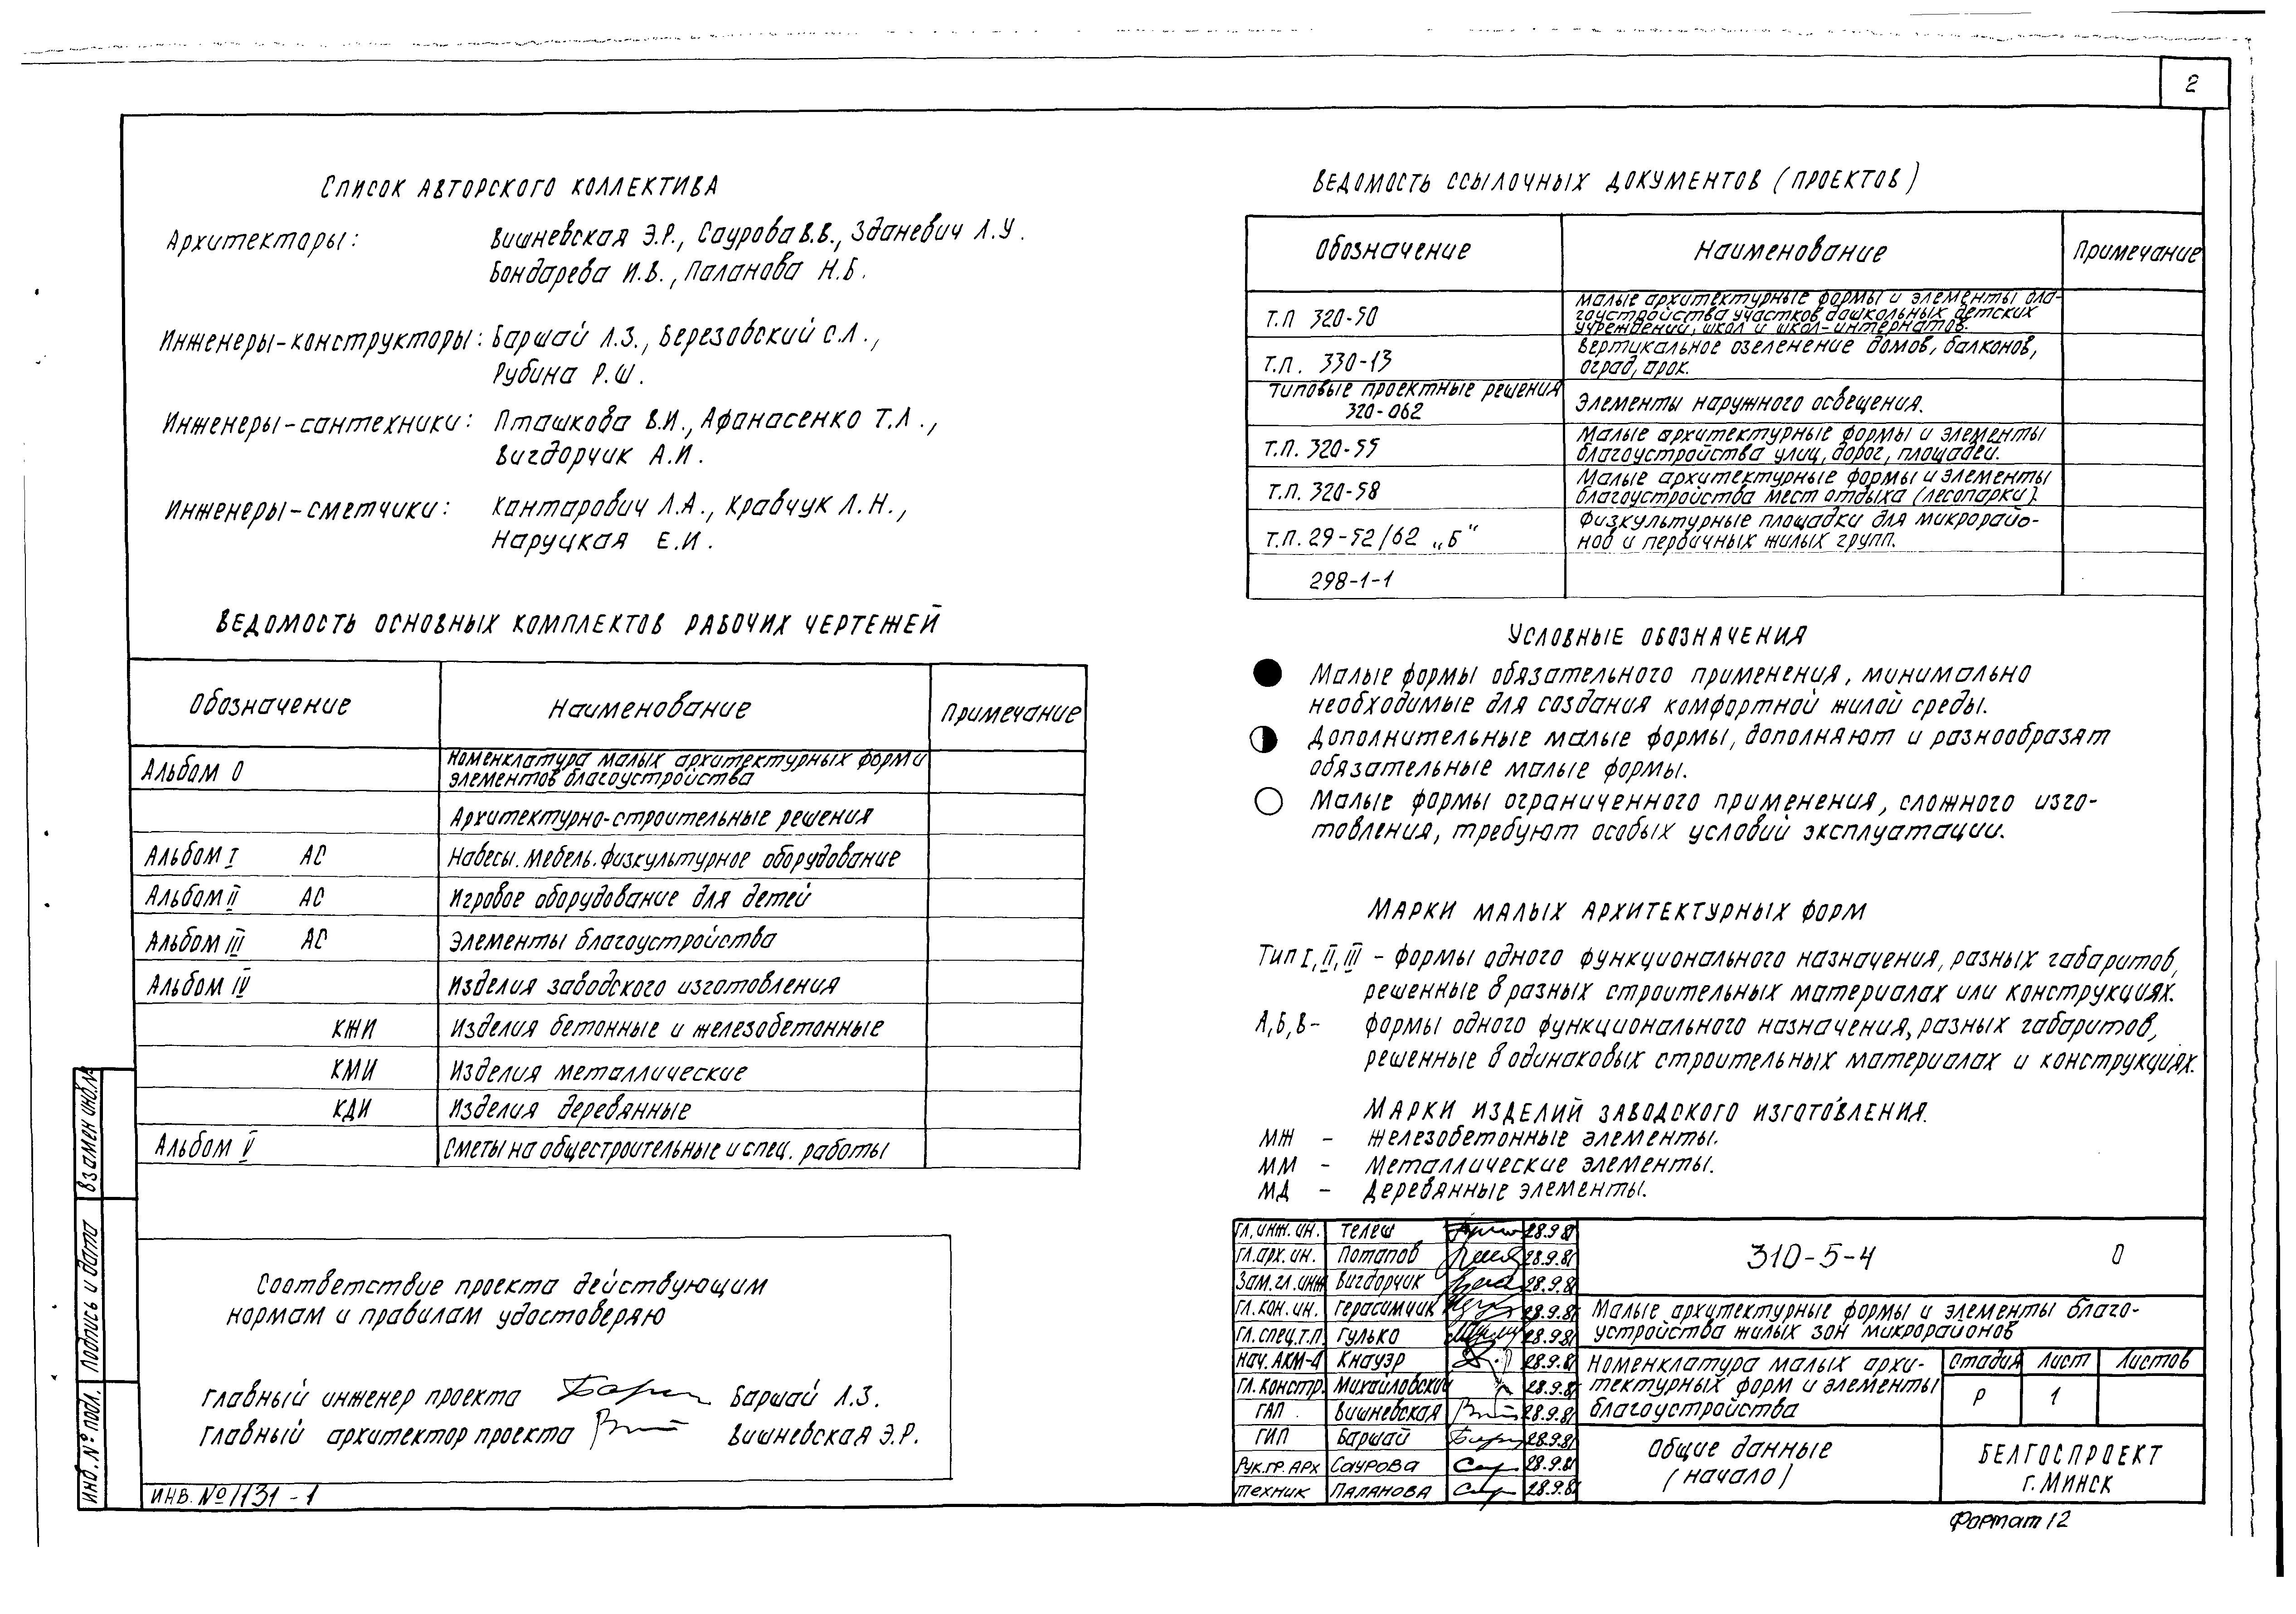 2
Список авторского коллектива
Архитекторы: Вишневская Э.Р., Саурова В.В., Зданевич Л.У.
Бондарева И.В., Паланова Н.Б.
Инженеры-конструкторы: Баршай Л.З., Березовский С.Л.,
Рубина Р.Ш.
Инженеры-сантехники: Пташкова В.И., Афанасенко Т.Л.,
Вигдорчик А.И.
Инженеры-сметчики: Кантарович Л.А., Кравчук Л.Н.,
Наруцкая Е.И.
Ведомость основных комплектов рабочих чертежей
Обозначение Наименование Примечание
Альбом 0 Номенклатура малых архитектурных форм и
элементов благоустройства
Архитектурно-строительные решения
Альбом I АС Навесы. Мебель. Физкультурное оборудование
Альбом II АС Игровое оборудование для детей
Альбом III АС Элементы благоустройства
Альбом IV Изделия заводского изготовления
КЖИ Изделия бетонные и железобетонные
КМИ Изделия металлические
КДИ Изделия деревянные
Альбом V Сметы на общестроительные и спец. работы
Соответствие проекта действующим
нормам и правилам удостоверяю
Главный инженер проекта Баршай Л.З.
Главный архитектор проекта Вишневская Э.Р.
Инв. № подл. Подпись и дата Взамен инв.№
Инв. № 1131-1
Ведомость ссылочных документов (проектов)
Обозначение Наименование Примечание
Т.П 320-50 Малые архитектурные формы и элементы бла-
гоустройства участков дошкольных детских
учреждений, школ и школ-интернатов.
Т.П. 330-13 Вертикальное озеленение домов, балконов,
оград, арок.
Типовые проектные решения
320-062 Элементы наружного освещения.
Т.П. 320-55 Малые архитектурные формы и элементы
благоустройства улиц, дорог, площадей.
Т.П. 320-58 Малые архитектурные формы и элементы
благоустройства мест отдыха (лесопарки).
Т.П. 29-52/62 „Б" Физкультурные площадки для микрорайо-
нов и первичных жилых групп.
298-1-1
Условные обозначения
Малые формы обязательного применения, минимально
необходимые для создания комфортной жилой среды.
Дополнительные малые формы, дополняют и разнообразят
обязательные малые формы.
Малые формы ограниченного применения, сложного изго-
товления, требуют особых условий эксплуатации.
Марки малых архитектурных форм
Тип I, II, III – формы одного функционального назначения, разных габаритов,
решенные в разных строительных материалах или конструкциях.
А,Б,В – формы одного функционального назначения, разных габаритов,
решенные в одинаковых строительных материалах и конструкциях.
Марки изделий заводского изготовления.
МЖ – Железобетонные элементы.
ММ – Металлические элементы.
МД – Деревянные элементы.
Гл. инж. ин. Телеш 28.9.81
Гл. арх. ин. Потапов 28.9.81
Зам. гл. инж Вигдорчик 28.9.81
Гл. кон. ин. Герасимчик 28.9.81
Гл. спец. т.п. Гулько 28.9.81
Нач. АКМ-4 Кнауэр 28.9.81
Гл. констр. Михайловский 28.9.81
ГАП Вишневская 28.9.81
ГИП Баршай 28.9.81
Рук. гр. арх Саурова 28.9.81
Техник Паланова 28.9.81
310-5-4 0
Малые архитектурные формы и элементы благо-
устройства жилых зон микрорайонов
Номенклатура малых архи-
тектурных форм и элементы
благоустройства
Стадия Лист Листов
Р 1
Общие данные
(начало)
БЕЛГОСПРОЕКТ
г. МИНСК
Формат 12